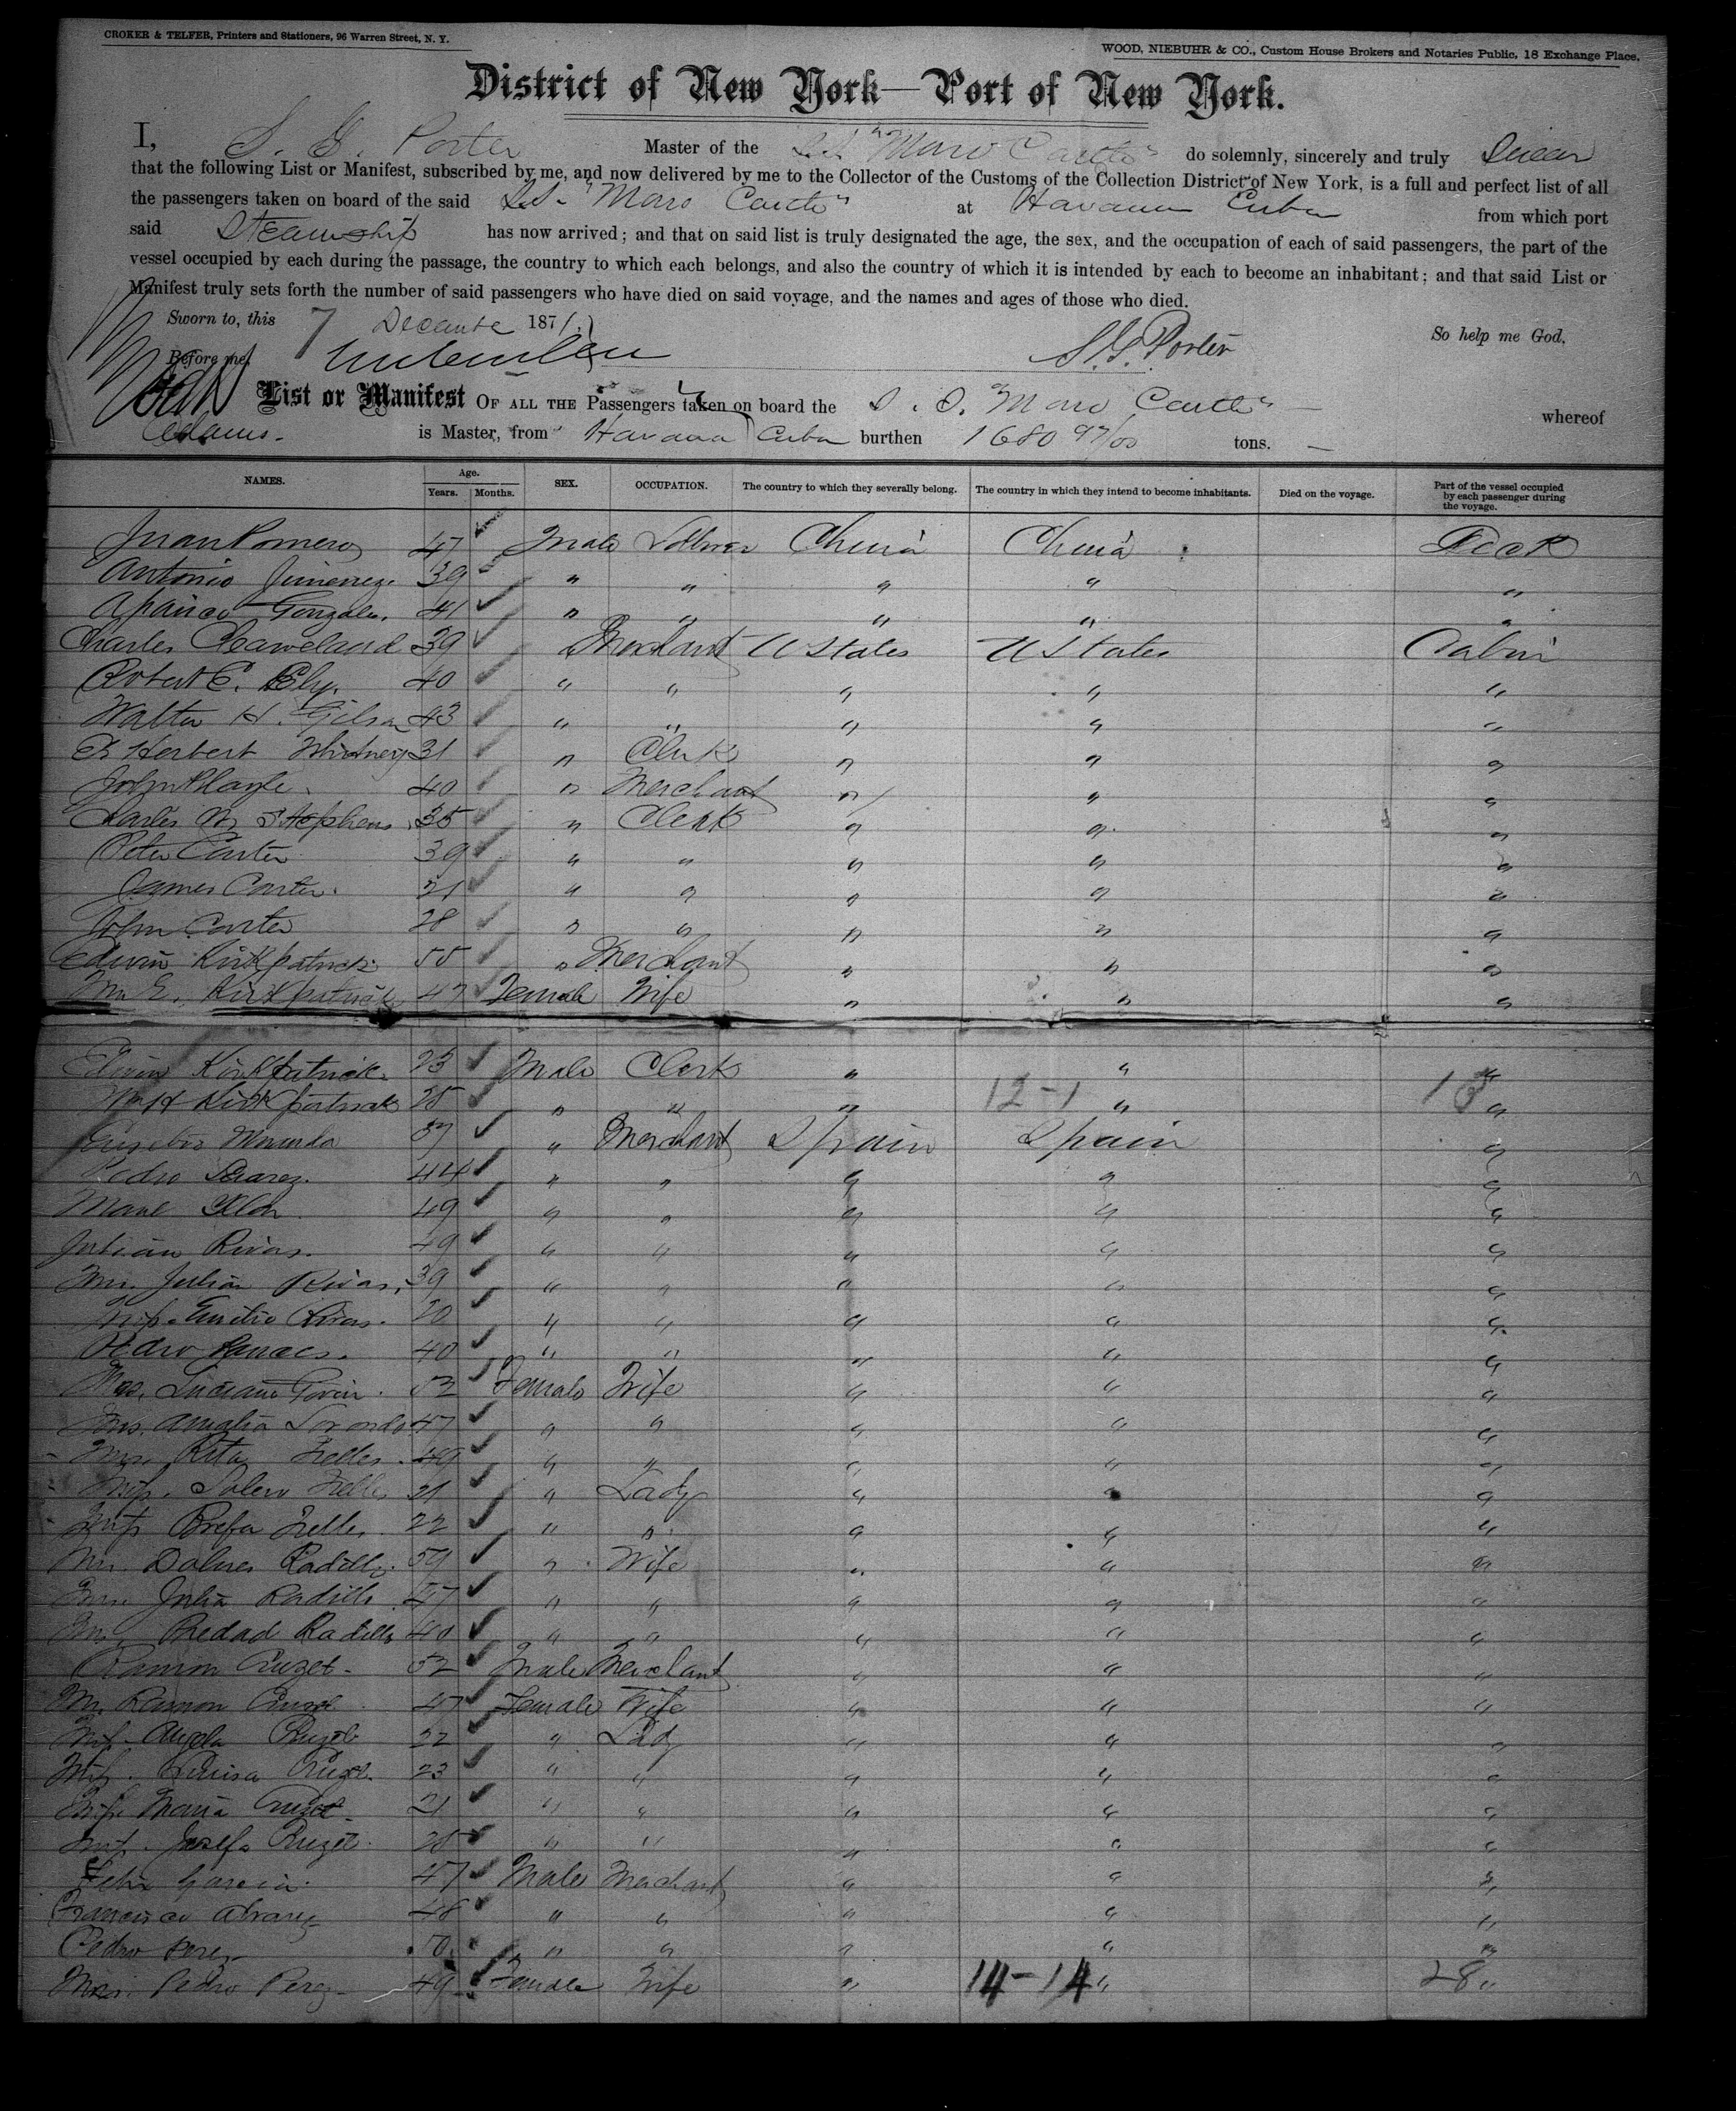 CROKER & TELFER, Printers and Stationers, 96 Warren Street, N. Y.
WOOD, NIEBUHR & CO., Custom House Brokers and Notaries Public, 18 Exchange Place.
District of New York—Port of New York.
I, S. G. Porter Master of the S.S. "Moro Castle" do solemnly, sincerely and truly Swear
that the following List or Manifest, subscribed by me, and now delivered by me to the Collector of the Customs of the Collection District of New York, is a full and perfect list of all
the passengers taken on board of the said S.S. "Moro Castle" at Havana Cuba from which port
said Steamship has now arrived; and that on said list is truly designated the age, the sex, and the occupation of each of said passengers, the part of the
vessel occupied by each during the passage, the country to which each belongs, and also the country of which it is intended by each to become an inhabitant; and that said List or
Manifest truly sets forth the number of said passengers who have died on said voyage, and the names and ages of those who died.
Sworn to, this 7 December 1871. So help me God,
Before me, S. G. Porter
List or Manifest OF ALL THE Passengers taken on board the S. S. "Moro Castle" whereof
is Master, from Havana Cuba burthen 1680 97/00 tons.
NAMES. Age. Years. Months. SEX. OCCUPATION. The country to which they severally belong. The country in which they intend to become inhabitants. Died on the voyage. Part of the vessel occupied by each passenger during the voyage.
Juan Romero 47 Male China China Deck
Antonio Jimenez 39 " " " " "
Gonzales 41 " " " " "
Charles Cleaveland 39 Merchant U States U States Cabin
Robert C. Ely. 40 " " " " "
Walter H. Gilson 43 " " " " "
Herbert Whitney 31 " Clerk " " "
John 40 " Merchant " " "
Charles Stephens 35 " Clerk " " "
Peter Carter 39 " " " " "
James Carter. 21 " " " " "
John Carter 28 " " " " "
Edwin Kirkpatrick 55 " Merchant " " "
Mrs E. Kirkpatrick 47 Female Wife " " "
Edwin Kirkpatrick 23 Male Clerk " " "
Wm H Kirkpatrick 25 " " " 12-1 " "
37 " Merchant Spain Spain "
Pedro Suarez. 44 " " " " "
49 " " " " "
Julian Rivas. 49 " " " " "
Mrs. Julia Rivas. 39 " " " " "
Miss Emilia Rivas. 20 " " " " "
Pedro 40 " " " " "
Mrs. Luciana Govin. 52 Female Wife " " "
Mrs. Amalia 47 " " " " "
Mrs. Rita Telles. 49 " " " " "
Miss. Telles 21 " Lady " " "
Miss Telles. 22 " " " " "
Mrs. Dolores Radillo. 59 " Wife " " "
Mrs. Julia Radillo 47 " " " " "
Mrs. Piedad Radillo 40 " " " " "
Ramon Cruzet. 52 Male Merchant " " "
Mrs. Ramon Cruzet 47 Female Wife " " "
Miss. Angela Cruzet 22 " Lady " " "
Miss. Luisa Cruzet. 23 " " " " "
Miss. Maria Cruzet 21 " " " " "
Miss. Josefa Cruzet. 25 " " " " "
Felix Garcia. 47 Male Merchant " " "
Francisco Alvarez 48 " " " " "
Pedro Perez 50 " " " " "
Mrs. Pedro Perez 49 Female Wife " 14-14 " 28 "